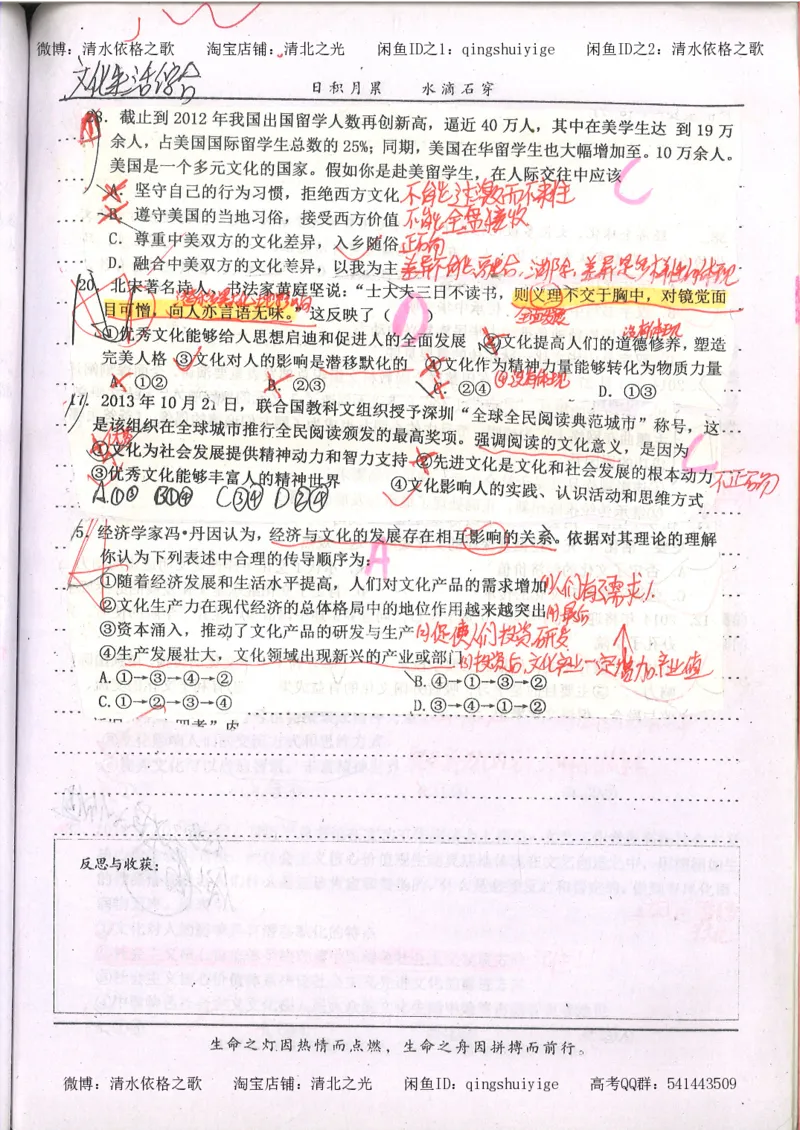 微博：清水依格之歌 淘宝店铺：清北之光 闲鱼ID之1：qingshuiyige 闲鱼ID之2：清水依格之歌
文化生活综合
日积月累 水滴石穿
28．截止到 2012 年我国出国留学人数再创新高，逼近 40 万人，其中在美学生达 到 19 万
余人，占美国国际留学生总数的 25%；同期，美国在华留学生也大幅增加至。10 万余人。
美国是一个多元文化的国家。假如你是赴美留学生，在人际交往中应该 C
A．坚守自己的行为习惯，拒绝西方文化 不能过激而不来往
B．遵守美国的当地习俗，接受西方价值 不能全盘接收
C．尊重中美双方的文化差异，入乡随俗 正确
D．融合中美双方的文化差异，以我为主 差异不能融合、消除，差异是
20．北宋著名诗人、书法家黄庭坚说：“士大夫三日不读书，则义理不交于胸中，对镜觉面
目可憎，向人亦言语无味。”这反映了（ ）
全面发展
①优秀文化能够给人思想启迪和促进人的全面发展 ②文化提高人们的道德修养，塑造
没有体现
完美人格 ③文化对人的影响是潜移默化的 ④文化作为精神力量能够转化为物质力量
A．①② B．②③ C．②④ ④没有体现 D．①③
17．2013 年 10 月 21 日，联合国教科文组织授予深圳“全球全民阅读典范城市”称号，这
是该组织在全球城市推行全民阅读颁发的最高奖项。强调阅读的文化意义，是因为 C
①文化为社会发展提供精神动力和智力支持 ②先进文化是文化和社会发展的根本动力 不正确
③优秀文化能够丰富人的精神世界 ④文化影响人的实践、认识活动和思维方式
A①② B①④ C③④ D②④
5．经济学家冯·丹因认为，经济与文化的发展存在相互影响的关系。依据对其理论的理解
你认为下列表述中合理的传导顺序为： A
①随着经济发展和生活水平提高，人们对文化产品的需求增加 人们有需求
②文化生产力在现代经济的总体格局中的地位作用越来越突出 最后
③资本涌入，推动了文化产品的研发与生产 促使人们投资研发
④生产发展壮大，文化领域出现新兴的产业或部门 投资后，文化产业一定增加产业值
A.①→③→④→② B.④→①→③→②
C.①→②→③→④ D.③→④→①→②
反思与收获：
生命之灯因热情而点燃，生命之舟因拼搏而前行。
微博：清水依格之歌 淘宝店铺：清北之光 闲鱼ID：qingshuiyige 高考QQ群：541443509